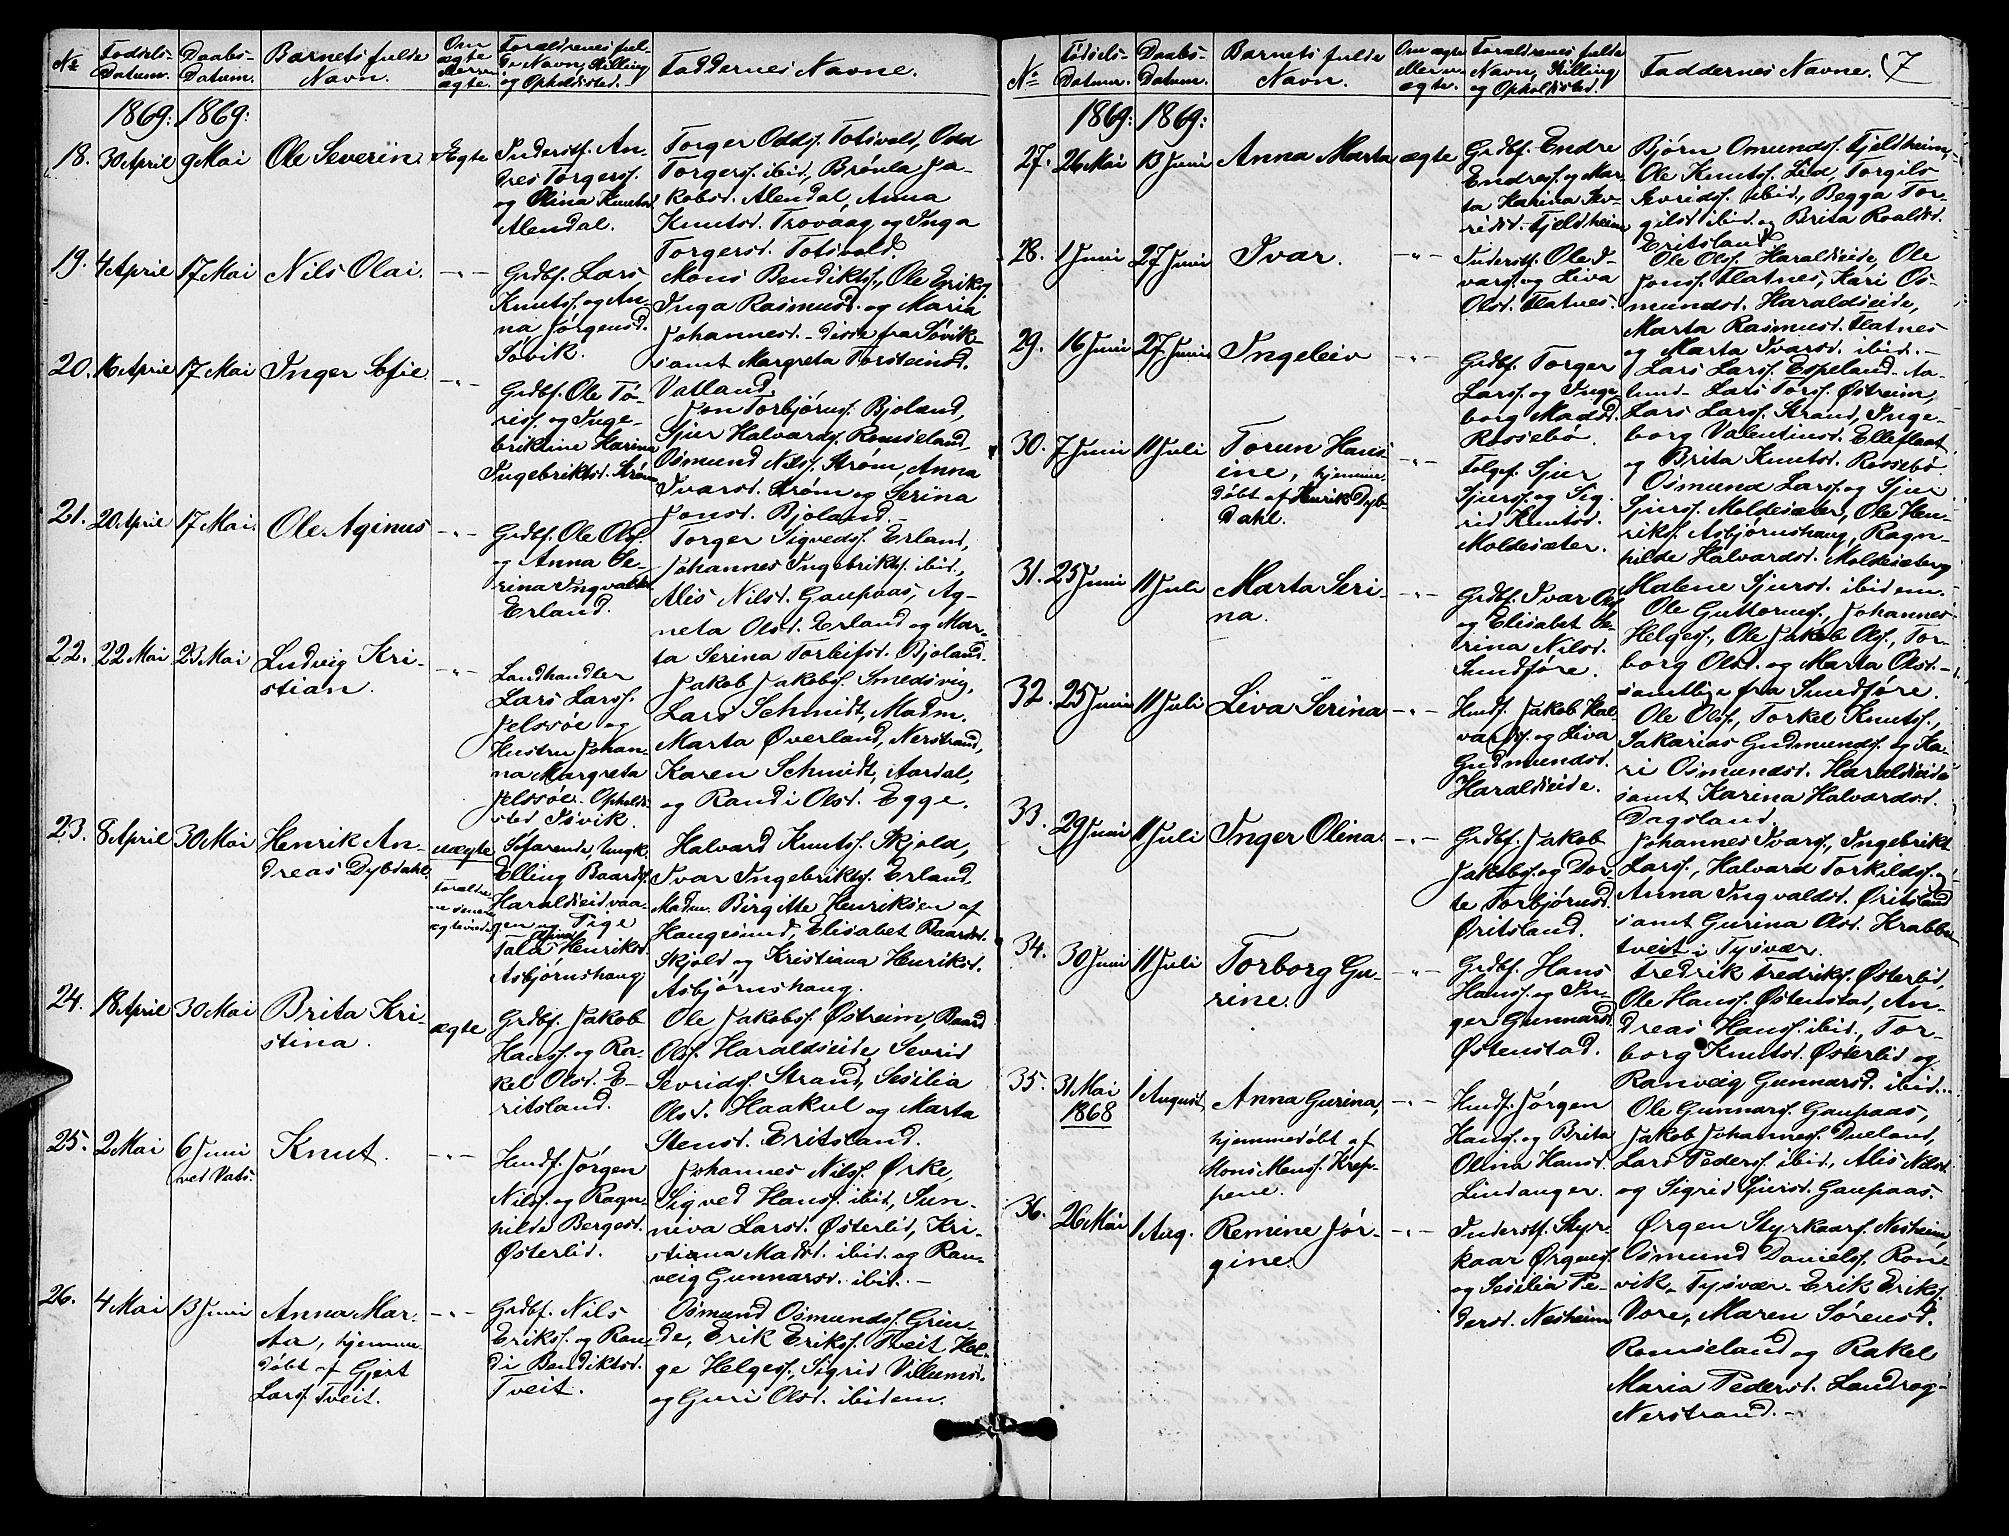 №
Fødsels-
Datum.
Daabs-
Datum.
Barnets fulde
Navn.
Om
ægte
eller u-
ægte.
Forældrenes ful-
de Navn, Stilling
og Opholdssted.
Faddernes Navne.
1869: 1869:
18. 30 April 9 Mai Ole Severin Ægte
Inderstf. An-
dres Torgerss.
og Olina Knutsd.
Alendal.
Torger Odds. Totsvold, Odd
Torgerss. ibid., Brønla Ja-
kobsd. Alendal, Anna
Knutsd. Trovaag og Inga
Torgersd. Totsvold.
19. 4 April 17 Mai Nils Olai. -"-
Grdbf. Lars
Knutss. og An-
na Jørgensd.
Søvik.
Mons Bendikts., Ole Eriks.,
Inga Rasmusd. og Maria
Johannesd. - disse fra Søvik -
samt Margreta Torsteinsd.
Vatland.
20. 16 April 17 Mai Inger Sofie. -"-
Grdbf. Ole To-
riss. og Inge-
briktine Karina
Ingebriktsd. Strøm
Jon Torbjørns. Bjoland,
Sjur Halvards. Romseland,
Osmund Nils. Strøm, Anna
Ivarsd. Strøm og Serina
Jonsd. Bjoland.
21. 20 April 17 Mai. Ole Aginus -"-
Grdbf. Ole Ols.
og Anna Se-
rina Ingvaldsd.
Erland.
Torger Sigveds. Erland,
Johannes Ingebrikts. ibid.,
Alis Nilsd. Gaupaas, Ag-
neta Olsd. Erland og Mar-
ta Serina Torleifsd. Bjoland.
22. 22 Mai 23 Mai Ludvig Kri-
stian. -"-
Landhandler
Lars Larss.
Jelssøe og
Hustru Johan-
na Margreta
Jelssøe. Opholds-
sted Isvik.
Jakob Jakobs. Smedsvig,
Lars Schmidt, Madm.
Marta Øverland, Nerstrand,
Karen Schmidt, Aardal,
og Randi Olsd. Egge.
23. 8 April 30 Mai Henrik An-
dreas Dybdahl.
uægte
Forældre-
ne senere
ægteviede
Søfarende, Ungk.
Elling Baards.
Haraldseidvaa-
gen og Pige
Tala Henriksd.
Asbjørnshaug
Halvard Knuts. Skjold,
Ivar Ingebrikts. Erland,
Madm. Birgitte Henriksen af
Haugesund, Elisabet Baardsd.
Skjold og Kristiana Henriksd.
Asbjørnshaug.
24. 18 April 30 Mai Brita Kri-
stina. ægte
Grdbf. Jakob
Hanss. og Ra-
kel Olsd. E-
ritsland.
Ole Jakobs. Østreim, Baard
Ols. Haraldseide, Sevrid
Sevrids. Strand, Sesilia
Olsd. Haakul og Marta
Stensd. Eritsland.
25. 2 Mai 6 Juni
ved Vats. Knut. -"-
Husdf. Jørgen
Nilss. og Ragn-
hilda Bergesd.
Østerlid.
Johannes Nils. Ørke,
Sigved Hanss. ibid., Sun-
niva Larsd. Østerlid, Kri-
stiana Madsd. ibid. og Ran-
veig Gunnarsd. ibid. -
26. 4 Mai 13 Juni Anna Mar-
ta, hjemme-
døbt af Gjert
Larss. Tveit. -"-
Grdbf. Nils
Erikss. og Ran-
di Bendiktsd.
Tveit.
Osmund Osmunds. Grin-
de, Erik Eriks. Tveit, Hel-
ge Helgess., Sigrid Villumsd.
og Guri Olsd. ibidem.
№
Fødsels-
Datum.
Daabs-
Datum.
Barnets fulde
Navn.
Om ægte
eller u-
ægte.
Forældrenes fulde
Navn, Stilling
og Opholdssted.
Faddernes Navne. 7
1869: 1869:
27. 26 Mai 13 Juni Anna Marta ægte
Grdbf. Endre
Endress. og Mar-
ta Karina Sev-
ridsd. Fjeldheim
Bjørn Omunds. Fjeldheim,
Ole Knutss. Lid, Torgils
Sevrids. ibid., Begga Tor-
gilsd. ibid. og Brita Roaldsd.
Eritsland.
28. 1 Juni 27 Juni Ivar. -"-
Inderstf. Ole I-
varss. og Liva
Olsd. Flatnes.
Ole Ols. Haraldseide, Ole
Jonss. Flatnes, Kari Os-
mundsd. Haraldseide,
Marta Rasmusd. Flatnes
og Marta Ivarsd. ibid. -
29. 16 Juni 27 Juni Ingeleiv -"-
Grdbf. Torger
Larss. og Inge-
borg Madsd.
Rossebø.
Lars Larss. Espeland - Aa-
lund - Lars Torss. Østreim,
Lars Larss. Strand, Inge-
borg Valentinsd. Elleflaat
og Brita Knutsd. Rossebø.
30. 7 Juni 11 Juli Torun Hans-
ine, hjemme-
døbt af Henrik Dyb-
dahl. -"-
Folgef. Sjur
Sjurss. og Sig-
rid Knutsd.
Moldesæter.
Osmund Larss. og Sjur
Sjurss. Moldesæter, Ole Hen-
riks. Asbjørnshaug, Ragn-
hilde Halvardsd. Moldesæter og
Malene Sjursd. ibidem.
31. 25 Juni 11 Juli Marta Seri-
na. -"-
Grdbf. Ivar Ols.
og Elisabet Se-
rina Nilsd.
Sundføre.
Ole Guttorms., Johannes
Helgess., Ole Jakob Ols., Tor-
borg Olsd. og Marta Olsd. -
samtlige fra Sundføre.
32. 25 Juni 11 Juli Liva Serina -"-
Husdf. Jakob Hal-
vardss. og Liva
Gudmundsd.
Haraldseide.
Ole Ols., Torkel Knuts.,
Sakarias Gudmunds. og Ka-
ri Osmundsd. Haraldseide
samt Karina Halvardsd.
Dagsland.
33. 29 Juni 11 Juli Inger Olina. -"-
Grdbf. Jakob
Jakobss. og Dor-
te Torbjørnsd.
Øritsland.
Johannes Ivars., Ingebrikt
Larss., Halvard Torkilds. og
Anna Ingvaldsd. Øritsland
samt Gurina Olsd. Krabba-
tveit i Tysvær.
34. 30 Juni 11 Juli Torborg Gu-
rine. -"-
Grdbf. Hans
Hanss. og In-
ger Gunnarsd.
Østenstad.
Fredrik Fredriks. Østerlid,
Ole Hanss. Østenstad, An-
dreas Hanss. ibid., Tor-
borg Knutsd. Østerlid og
Ranveig Gunnarsd. ibid.
35. 31 Mai
1868 1 August Anna Gurina,
hjemmedøbt af
Mons Monss. Krep-
pene. -"-
Husdf. Jørgen
Hanss. og Brita
Olina Hansd.
Lindanger.
Ole Gunnars. Gaupaas,
Jakob Johanness. Dueland,
Lars Peders. ibid., Alis Nilsd.
og Sigrid Sjursd. Gaupaas.
36. 26 Mai 1 Aug. Remine Jør-
gine. -"-
Inderstf. Styr-
kaar Ørgess.
og Sesilia Pe-
dersd. Nesheim
Ørgen Styrkaars. Nesheim,
Osmund Daniels. Røne-
vik - Tysvær - Erik Eriks.
Vore, Maren Sørensd.
Romseland og Rakel
Maria Pedersd. Landrog -
Nerstrand. -